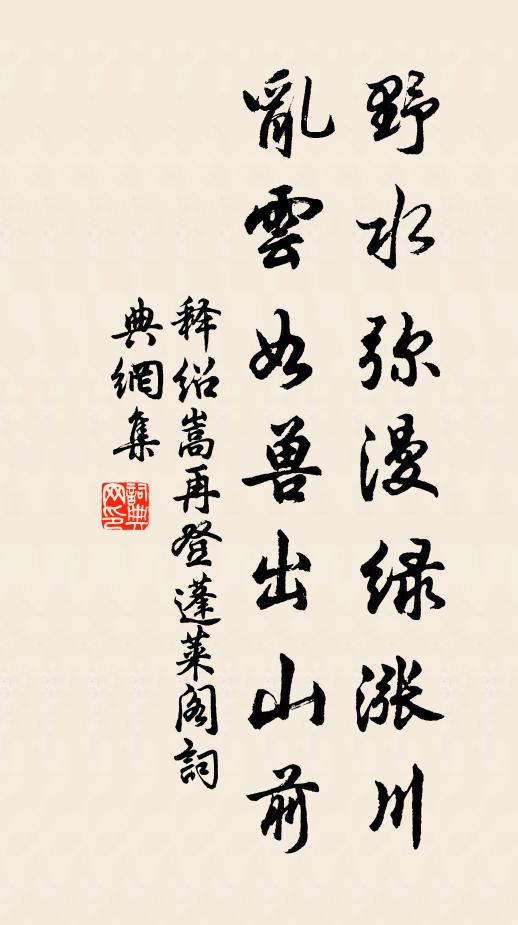 野水弥漫绿涨川
亂雲如兽出山前
释绍嵩再登蓬莱阁詞
典網集
詞典網印